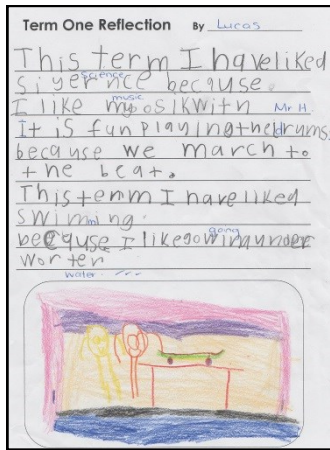 Term One Reflection By Lucas
This term I have liked
science
siyernce because.
music
I like myosik with Mr H.
It is fun playing the drums.
because we march to
the beat.
This temm I have liked
swiming.
mi
going
because I like gowing under
worter
water